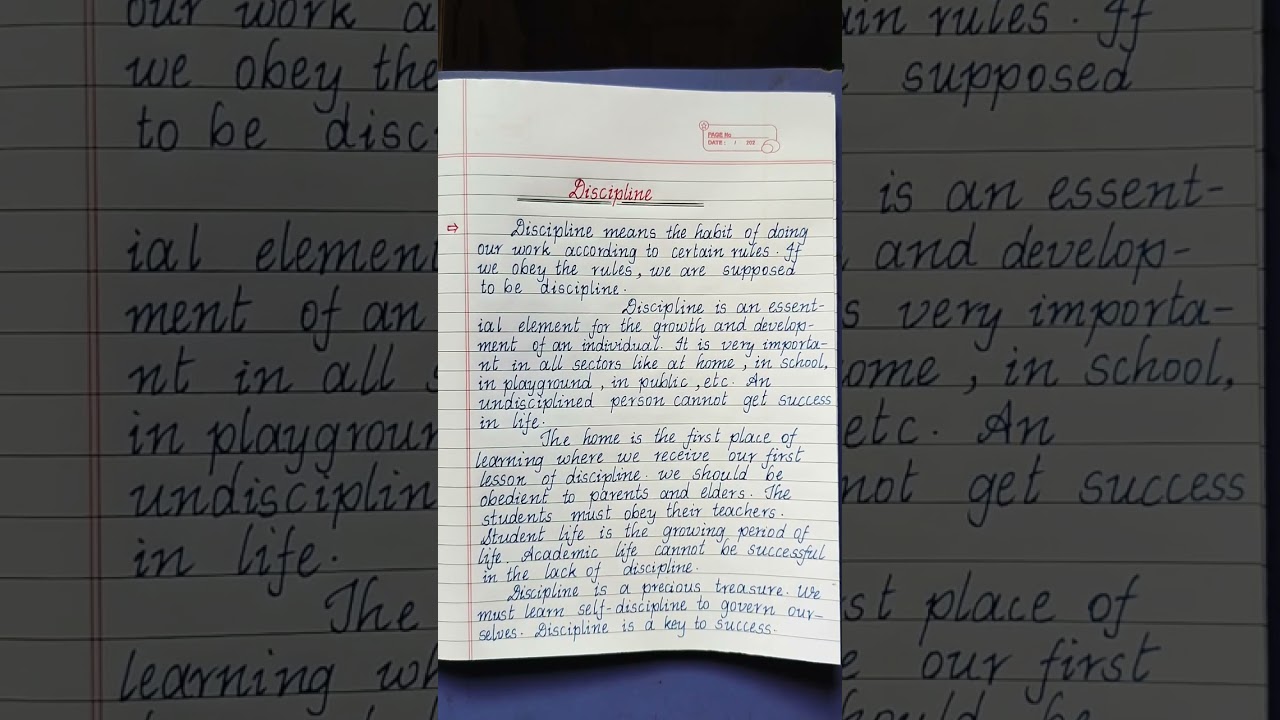 PAGE No
DATE : / 202
Discipline
⇨ Discipline means the habit of doing
our work according to certain rules. If
we obey the rules, we are supposed
to be discipline.
Discipline is an essent-
ial element for the growth and develop-
ment of an individual. It is very importa-
nt in all sectors like at home, in school,
in playground, in public, etc. An
undisciplined person cannot get success
in life.
The home is the first place of
learning where we receive our first
lesson of discipline. we should be
obedient to parents and elders. The
students must obey their teachers.
Student life is the growing period of
life. Academic life cannot be successful
in the lack of discipline.
Discipline is a precious treasure. We
must learn self-discipline to govern our-
selves. Discipline is a key to success.